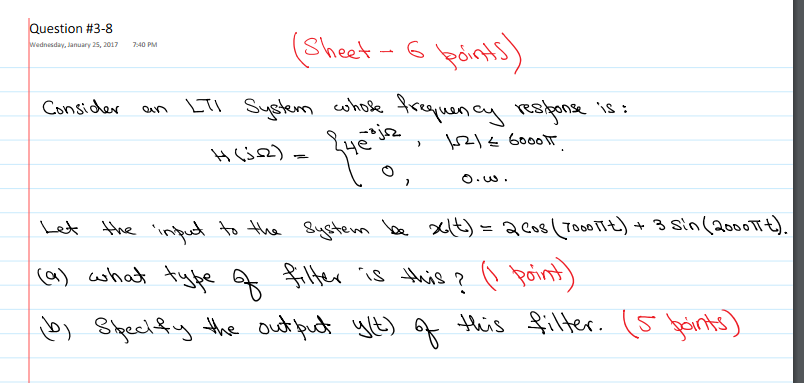 Question #3-8
Wednesday, January 25, 2017 7:40 PM
(Sheet - 6 points)
Consider an LTI System whose frequency response is :
H(jΩ) = { 4e^{-3jΩ} , |Ω| ≤ 6000π.
0, o.w.
Let the input to the system be x(t) = 2cos(7000πt) + 3 sin(2000πt).
(a) what type of filter is this? (1 point)
(b) Specify the output y(t) of this filter. (5 points)